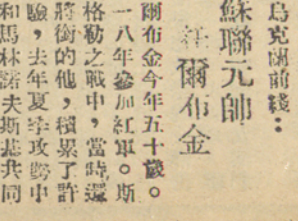 烏克蘭前綫：
蘇聯元帥
爾布金
爾布金今年五十歲。
一八年參加紅軍。斯
格勒之戰中，當時還
將銜的他，積累了許
驗，去年夏季攻勢中
和馬林諾夫斯基共同